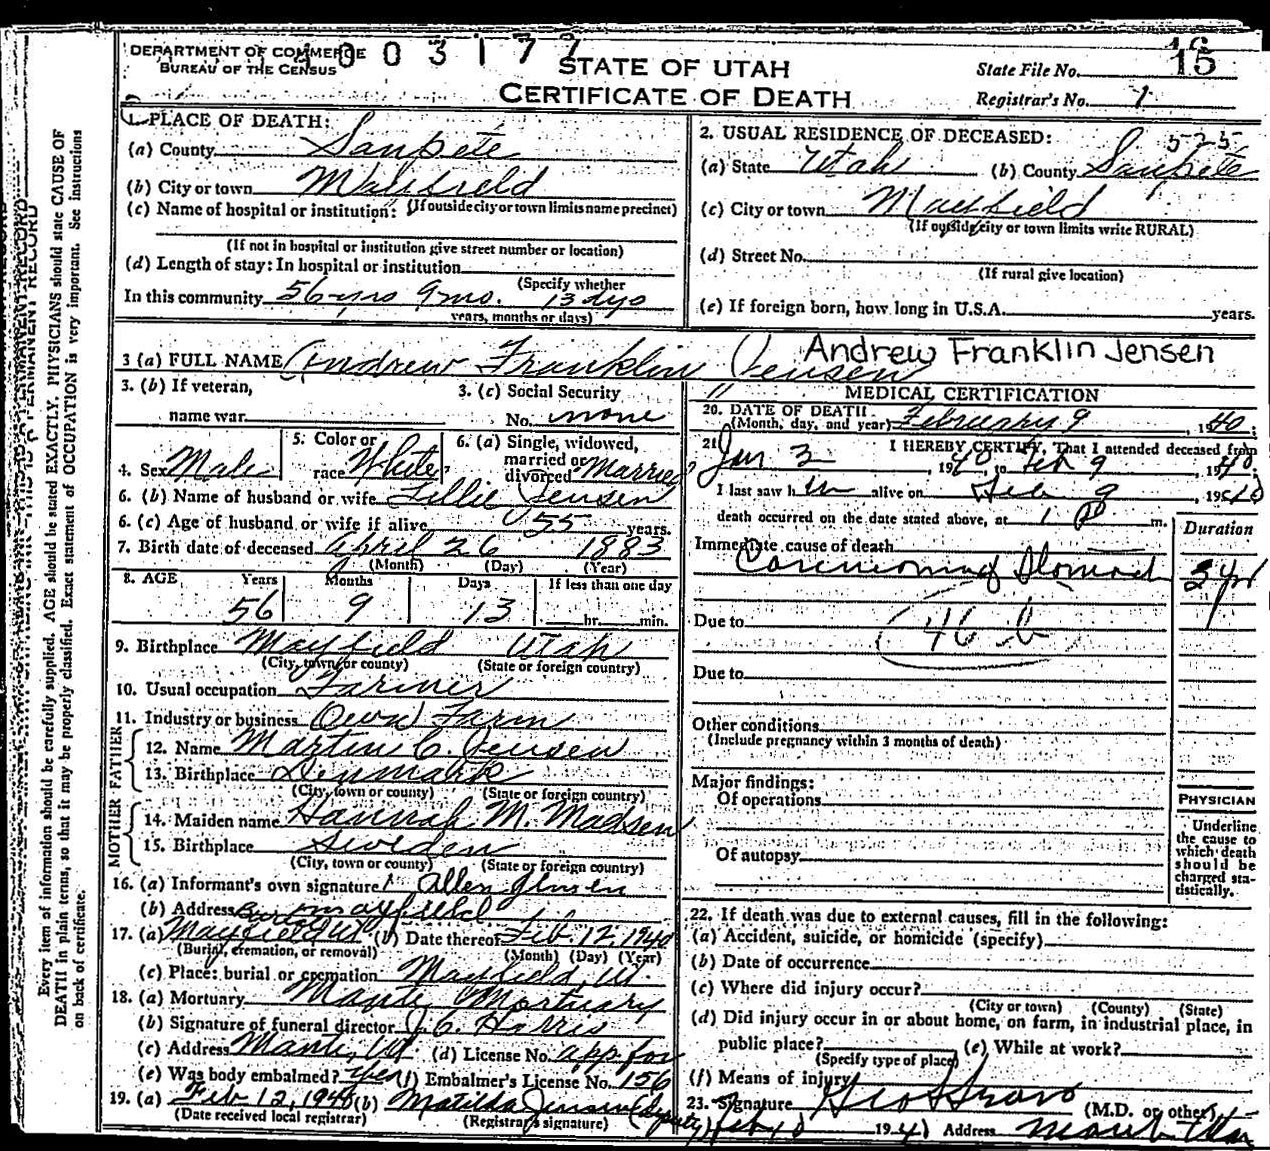 DEPARTMENT OF COMMERCE
BUREAU OF THE CENSUS
003177
STATE OF UTAH
CERTIFICATE OF DEATH
State File No. 15
Registrar's No. 1
1. PLACE OF DEATH:
(a) County Sanpete
(b) City or town Mayfield
(c) Name of hospital or institution: (If outside city or town limits name precinct)
(If not in hospital or institution give street number or location)
(d) Length of stay: In hospital or institution
(Specify whether
In this community 56 yrs 9 mo. 13 dys
years, months or days)
2. USUAL RESIDENCE OF DECEASED: 525
(a) State Utah (b) County Sanpete
(c) City or town Mayfield
(If outside city or town limits write RURAL)
(d) Street No.
(If rural give location)
(e) If foreign born, how long in U.S.A. years.
3 (a) FULL NAME Andrew Franklin Jensen Andrew Franklin Jensen
3. (b) If veteran,
name war
3. (c) Social Security
No. none
4. Sex Male
5. Color or
race White
6. (a) Single, widowed,
married or
divorced Married
6. (b) Name of husband or wife Lillie Jensen
6. (c) Age of husband or wife if alive 55 years.
7. Birth date of deceased April 26 1883
(Month) (Day) (Year)
8. AGE Years Months Days If less than one day
56 9 13 hr. min.
9. Birthplace Mayfield Utah
(City, town or county) (State or foreign country)
10. Usual occupation Farmer
11. Industry or business Own Farm
FATHER
12. Name Martin C. Jensen
13. Birthplace Denmark
(City, town or county) (State or foreign country)
MOTHER
14. Maiden name Hannah M. Madsen
15. Birthplace Sweden
(City, town or county) (State or foreign country)
16. (a) Informant's own signature Allen Jensen
(b) Address Mayfield
17. (a) Mayfield Ut (b) Date thereof Feb. 12, 1940
(Burial, cremation, or removal) (Month) (Day) (Year)
(c) Place: burial or cremation Mayfield, Ut.
18. (a) Mortuary Manti Mortuary
(b) Signature of funeral director J. C. Harris
(c) Address Manti, Ut (d) License No. app for
(e) Was body embalmed? yes (f) Embalmer's License No. 156
19. (a) Feb 12, 1940 (b) Matilda Jensen (Deputy)
(Date received local registrar) (Registrar's signature)
MEDICAL CERTIFICATION
20. DATE OF DEATH
(Month, day, and year) February 9, 1940;
21. I HEREBY CERTIFY, That I attended deceased from
Jan 3, 1940, to Feb 9, 1940.
I last saw him alive on Feb 9, 1940
death occurred on the date stated above, at 1 P m.
Duration
Immediate cause of death
Carcinoma of Stomach
Due to 46 b
Due to
Other conditions
(Include pregnancy within 3 months of death)
Major findings:
Of operations
Of autopsy
PHYSICIAN
Underline
the cause to
which death
should be
charged sta-
tistically.
22. If death was due to external causes, fill in the following:
(a) Accident, suicide, or homicide (specify)
(b) Date of occurrence
(c) Where did injury occur?
(City or town) (County) (State)
(d) Did injury occur in or about home, on farm, in industrial place, in
public place? (e) While at work?
(Specify type of place)
(f) Means of injury
23. Signature (M.D. or other)
Feb 10 194 Address
Every item of information should be carefully supplied. AGE should be stated EXACTLY. PHYSICIANS should state CAUSE OF
DEATH in plain terms, so that it may be properly classified. Exact statement of OCCUPATION is very important. See instructions
on back of certificate.